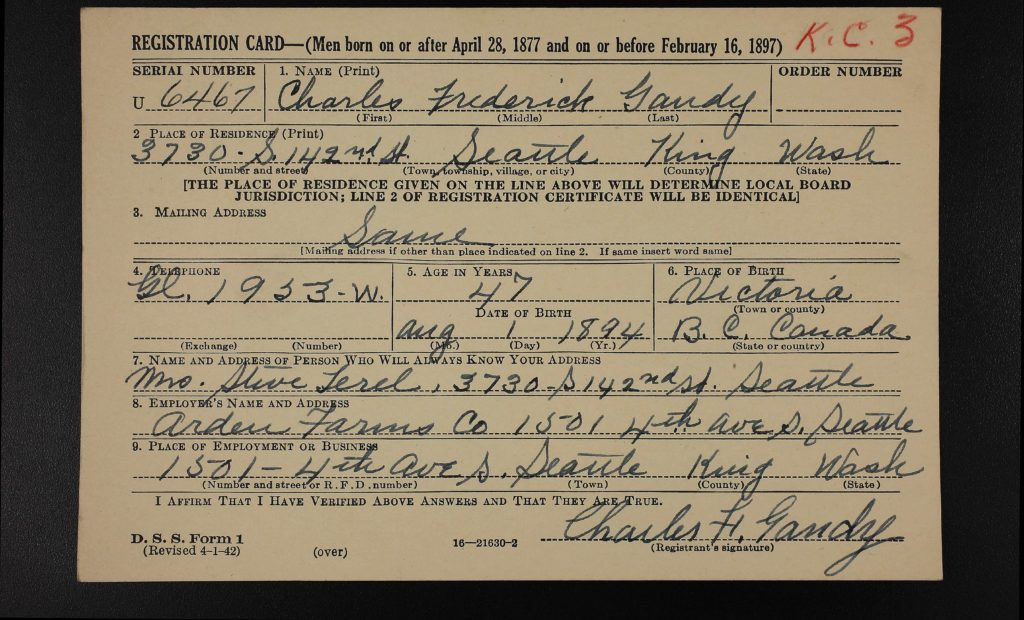 REGISTRATION CARD—(Men born on or after April 28, 1877 and on or before February 16, 1897) K.C. 3
SERIAL NUMBER 1. NAME (Print) ORDER NUMBER
U 6467 Charles Frederick Gandy
(First) (Middle) (Last)
2 PLACE OF RESIDENCE (Print)
3730 - S. 142nd St. Seattle King Wash
(Number and street) (Town, township, village, or city) (County) (State)
[THE PLACE OF RESIDENCE GIVEN ON THE LINE ABOVE WILL DETERMINE LOCAL BOARD
JURISDICTION; LINE 2 OF REGISTRATION CERTIFICATE WILL BE IDENTICAL]
3. MAILING ADDRESS
Same
[Mailing address if other than place indicated on line 2. If same insert word same]
4. TELEPHONE 5. AGE IN YEARS 6. PLACE OF BIRTH
Gl. 1953-W. 47 Victoria
DATE OF BIRTH (Town or county)
Aug 1 1894 B. C. Canada
(Exchange) (Number) (Mo.) (Day) (Yr.) (State or country)
7. NAME AND ADDRESS OF PERSON WHO WILL ALWAYS KNOW YOUR ADDRESS
Mrs. Steve Terel, 3730-S 142nd St. Seattle
8. EMPLOYER'S NAME AND ADDRESS
Arden Farms Co 1501 4th Ave S. Seattle
9. PLACE OF EMPLOYMENT OR BUSINESS
1501 - 4th Ave S. Seattle King Wash
(Number and street or R. F. D. number) (Town) (County) (State)
I AFFIRM THAT I HAVE VERIFIED ABOVE ANSWERS AND THAT THEY ARE TRUE.
Charles F. Gandy
D. S. S. Form 1
(Revised 4-1-42) (over) 16—21630-2 (Registrant's signature)